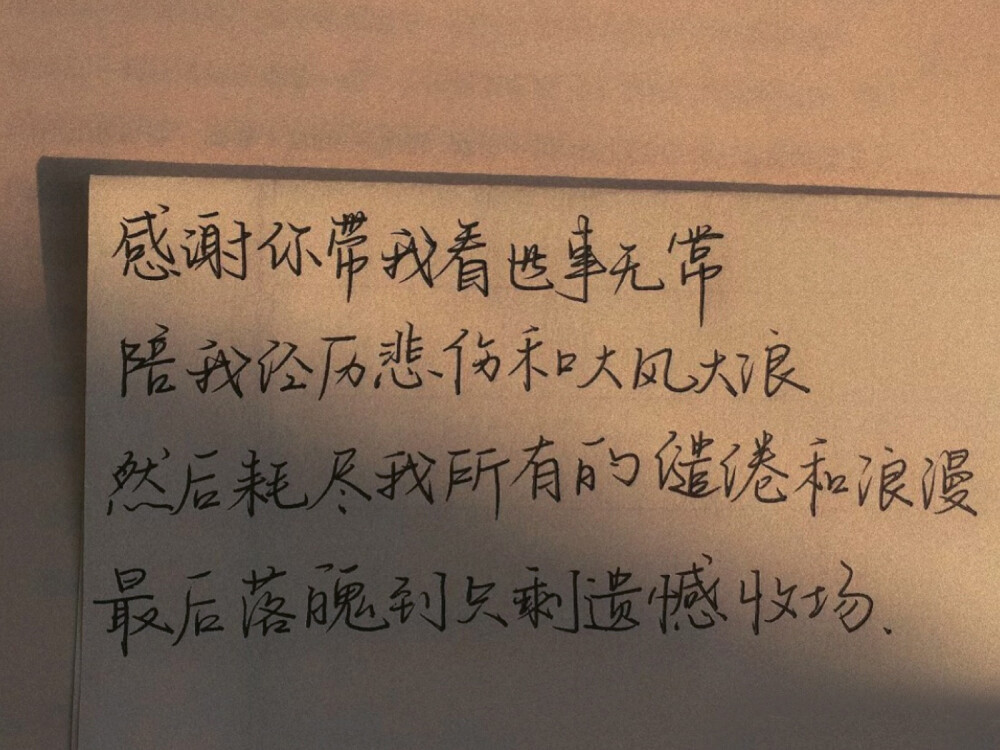 感谢你带我看世事无常
陪我经历悲伤和大风大浪
然后耗尽我所有的缱绻和浪漫
最后落魄到只剩遗憾收场.